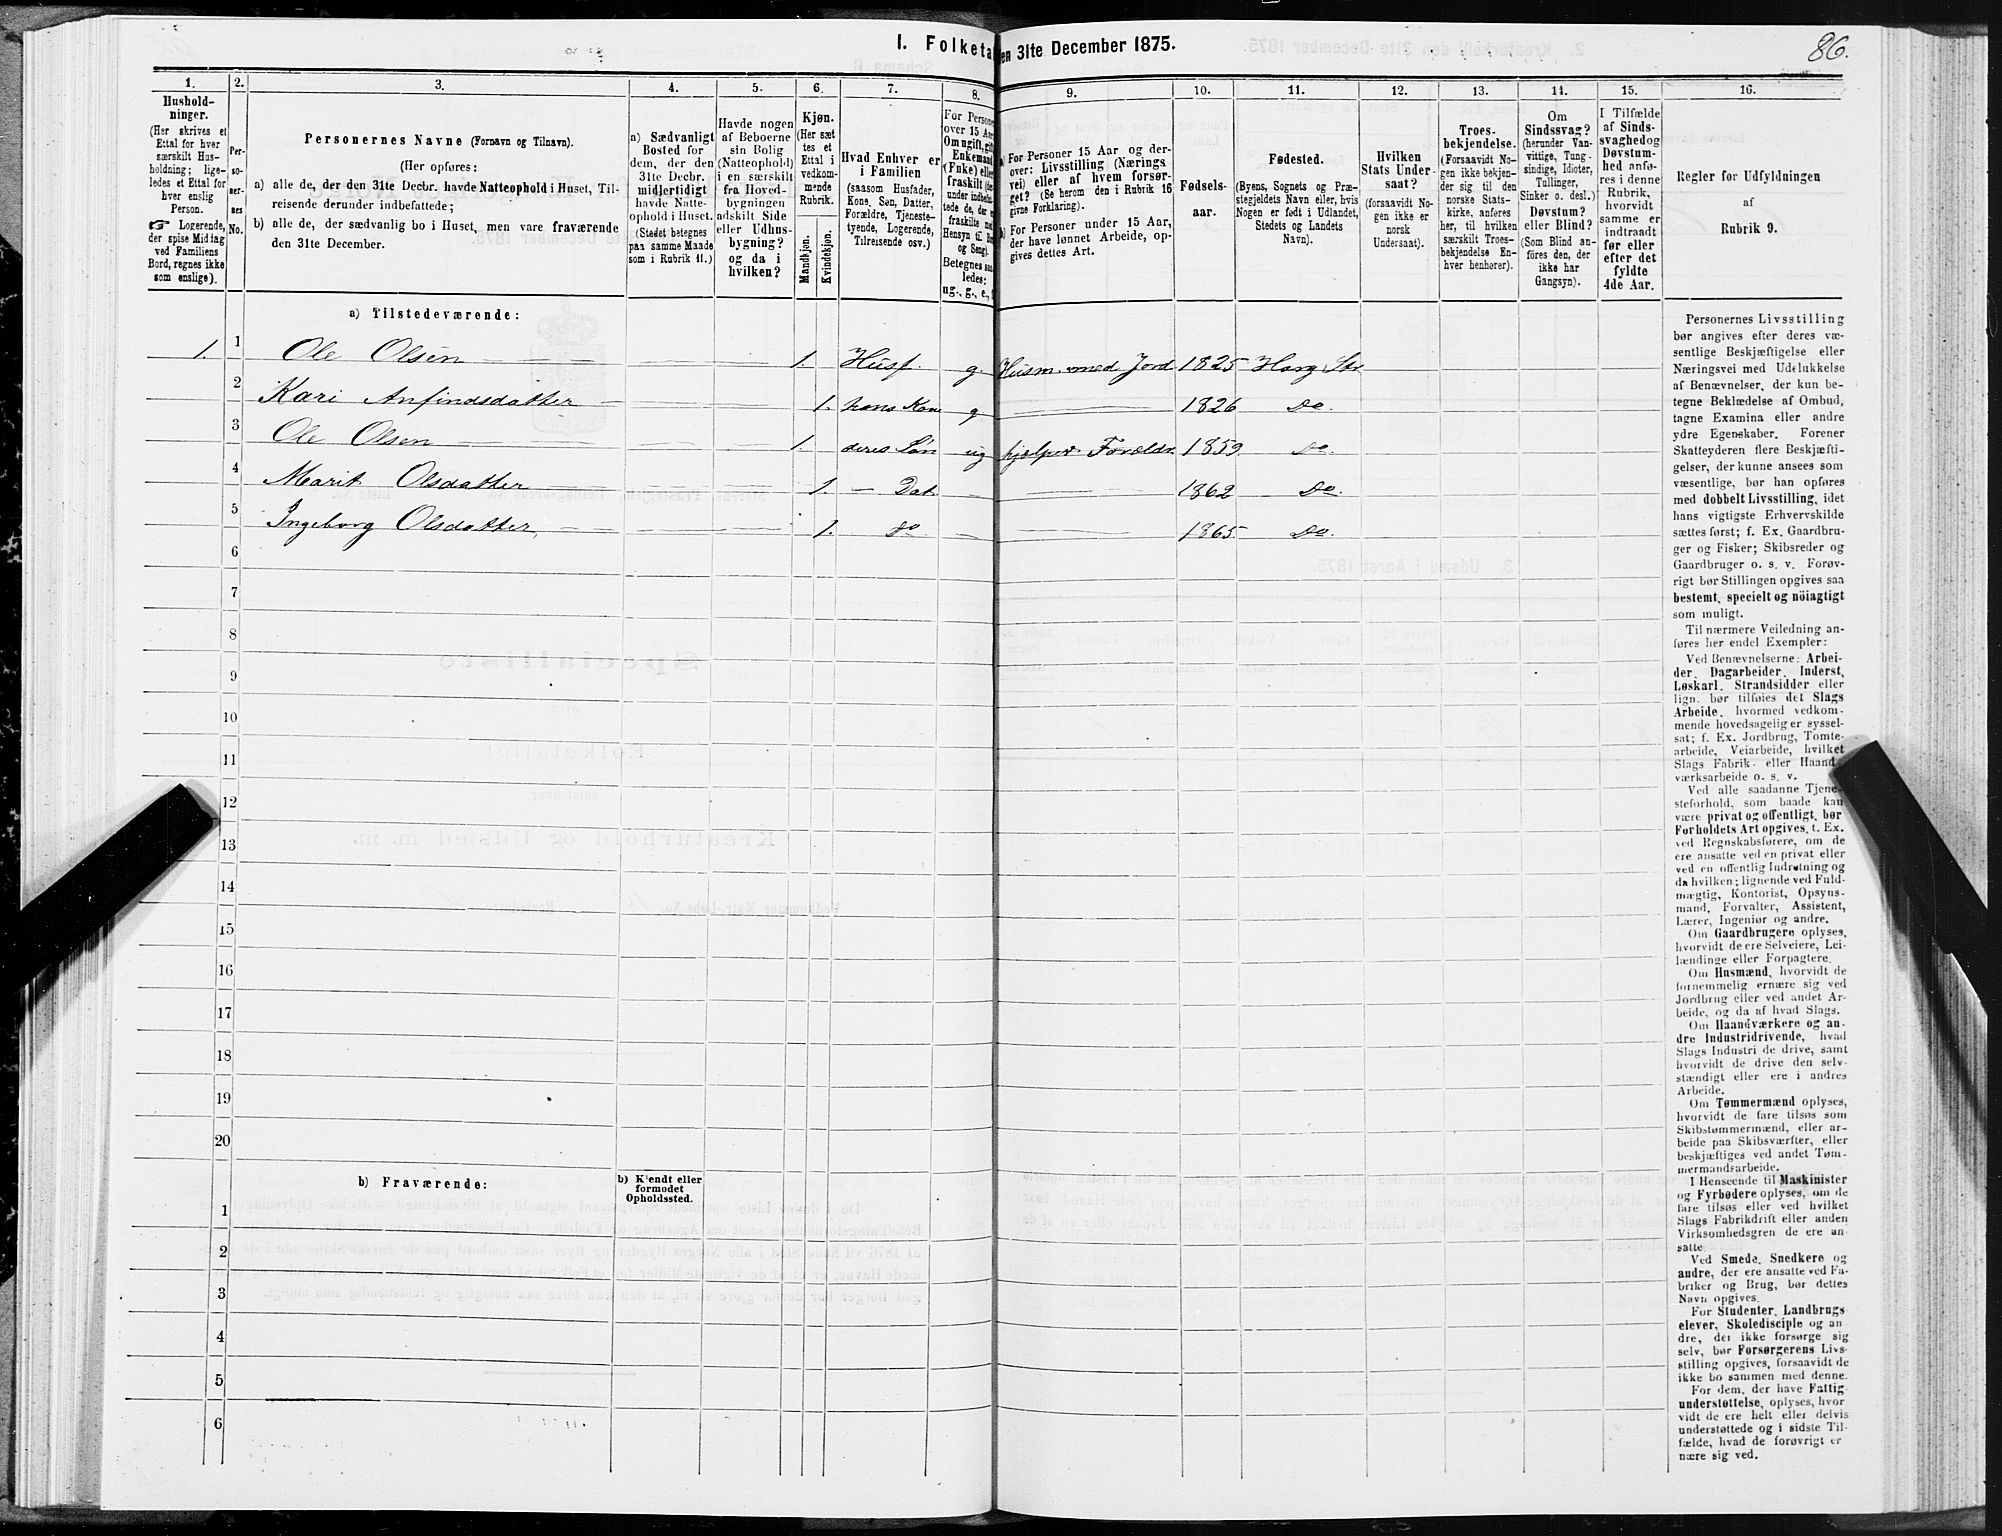 86.
I. Folketa
en 31te December 1875.
1.
2.
3.
4.
5.
6.
7.
8.
9.
10.
11.
12.
13.
14.
15.
16.
Hushold-
ninger.
(Her skrives et
Ettal for hver
særskilt Hus-
holdning; lige-
ledes et Ettal for
hver enslig
Person.
☞ Logerende,
der spise Middag
ved Familiens
Bord, regnes ikke
som enslige).
Per-
so-
ner-
nes
No.
Personernes Navne (Fornavn og Tilnavn).
(Her opføres:
a) alle de, der den 31te Decbr. havde Natteophold i Huset, Til-
reisende derunder indbefattede;
b) alle de, der sædvanlig bo i Huset, men vare fraværende
den 31te December.
a) Sædvanligt
Bosted for
dem, der den
31te Decbr.
midlertidigt
havde Natte-
ophold i Huset.
(Stedet betegnes
paa samme Maade
som i Rubrik 11.)
Havde nogen
af Beboerne
sin Bolig
(Natteophold)
i en særskilt
fra Hoved-
bygningen
adskilt Side
eller Udhus-
bygning?
og da i
hvilken?
Kjøn.
(Her sæt
tes et
Ettal i
vedkom-
mende
Rubrik.
Mandkjøn.
Kvindekjøn.
Hvad Enhver er
i Familien
(saasom Husfader,
Kone, Søn, Datter,
Forældre, Tjeneste-
tyende, Logerende,
Tilreisende osv.)
For Persone
over 15 Aar
Om ugift, gift
Enkemand
(Enke) eller
fraskilt (de
under indbefat-
tede de, der e
fraskilte med
Hensyn til Bo
og Seng).
Betegnes saa
ledes:
ug., g., e., f
a) For Personer 15 Aar og der-
over: Livsstilling (Nærings
vei) eller af hvem forsør-
get? (Se herom den i Rubrik 16
givne Forklaring).
b) For Personer under 15 Aar,
der have lønnet Arbeide, op-
gives dettes Art.
Fødsels-
aar.
Fødested.
(Byens, Sognets og Præ-
stegjeldets Navn eller, hvis
Nogen er født i Udlandet,
Stedets og Landets
Navn).
Hvilken
Stats Under-
saat?
(forsaavidt No-
gen ikke er
norsk
Undersaat).
Troes-
bekjendelse.
(Forsaavidt No-
gen ikke bekjen-
der sig til den
norske Stats-
kirke, anføres
her, til hvilken
særskilt Troes-
bekjendelse En-
hver henhører).
Om
Sindssvag?
(herunder Van-
vittige, Tung-
sindige, Idioter,
Tullinger,
Sinker o. desl.)
Døvstum?
eller Blind?
(Som Blind an-
føres den, der
ikke har
Gangsyn).
I Tilfælde
af Sinds-
svaghed og
Døvstum-
hed anfø-
res i denne
Rubrik,
hvorvidt
samme er
indtraadt
før eller
efter det
fyldte
4de Aar.
Regler for Udfyldningen
af
Rubrik 9.
a) Tilstedeværende:
1. 1 Ole Olsen 1. Husf. g. Husm. med Jord 1825 Horg Str
2 Kari Anfindsdatter 1. hans Kone g 1826 Do.
3 Ole Olsen 1. deres Søn ug hjælper Forældr. 1859. Do.
4 Marit Olsdatter 1. — Dat. 1862 Do
5 Ingeborg Olsdatter, 1. do 1865 Do.
6
7
8
9
10
11
12
13
14
15
16
17
18
19
20
b) Fraværende:
b) Kjendt eller
formodet
Opholdssted.
1
2
3
4
5
6
Personernes Livsstilling
bør angives efter deres væ-
sentlige Beskjæftigelse eller
Næringsvei med Udelukkelse
af Benævnelser, der kun be-
tegne Beklædelse af Ombud,
tagne Examina eller andre
ydre Egenskaber. Forener
Skatteyderen flere Beskjæfti-
gelser, der kunne ansees som
væsentlige, bør han opføres
med dobbelt Livsstilling, idet
hans vigtigste Erhvervskilde
sættes først; f. Ex. Gaardbru-
ger og Fisker; Skibsreder og
Gaardbruger o. s. v. Forøv-
rigt bør Stillingen opgives saa
bestemt, specielt og nöiagtigt
som muligt.
Til nærmere Veiledning an-
føres her endel Exempler:
Ved Benævnelserne: Arbei-
der, Dagarbeider, Inderst,
Løskarl, Strandsidder eller
lign. bør tilføies det Slags
Arbeide, hvormed vedkom-
mende hovedsagelig er syssel-
sat; f. Ex. Jordbrug, Tomte-
arbeide, Veiarbeide, hvilket
Slags Fabrik- eller Haand-
værksarbeide o. s. v.
Ved alle saadanne Tjene-
steforhold, som baade kan
være privat og offentligt, bør
Forholdets Art opgives, t. Ex.
ved Regnskabsførere, om de
ere ansatte ved en privat eller
ved en offentlig Indretning og
da hvilken; lignende ved Fuld-
mægtig, Kontorist, Opsyns-
mand, Forvalter, Assistent,
Lærer, Ingeniør og andre.
Om Gaardbrugere oplyses,
hvorvidt de ere Selveiere, Lei-
lændinge eller Forpagtere.
Om Husmænd, hvorvidt de
fornemmelig ernære sig ved
Jordbrug eller ved andet Ar-
beide, og da af hvad Slags.
Om Haandværkere og an-
dre Industridrivende, hvad
Slags Industri de drive, samt
hvorvidt de drive den selv-
stændigt eller ere i andres
Arbeide.
Om Tømmermænd oplyses,
hvorvidt de fare tilsøs som
Skibstømmermænd, eller ar-
beide paa Skibsværfter, eller
beskjæftiges ved andet Tøm-
mermandsarbeide.
I Henseende til Maskinister
og Fyrbødere oplyses, om de
fare tilsøs eller ved hvilket
Slags Fabrikdrift eller anden
Virksomhedsgren de ere an-
satte.
Ved Smede, Snedkere og
andre, der ere ansatte ved Fa-
briker og Brug, bør dettes
Navn opgives.
For Studenter, Landbrugs
elever, Skoledisciple og an
dre, der ikke forsørge sig
selv, bør Forsørgerens Livs-
stilling opgives, forsaavidt de
ikke bo sammen med denne.
For dem, der have Fattig
understøttelse, oplyses, hvor
vidt de ere helt eller delvis
understøttede og i sidste Til-
fælde, hvad de forøvrigt er
nære sig ved.